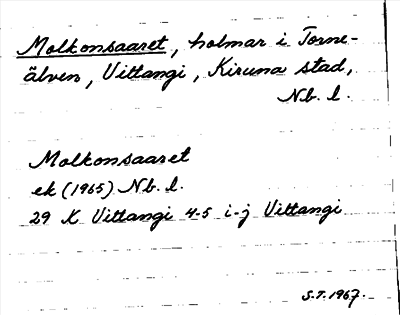 Molkonsaaret, holmar i Torne-
älven, Vittangi, Kiruna stad,
Nb. l.
Molkonsaaret
ek (1965) Nb. l.
29 K Vittangi 4-5 i-j Vittangi
S.T. 1967.